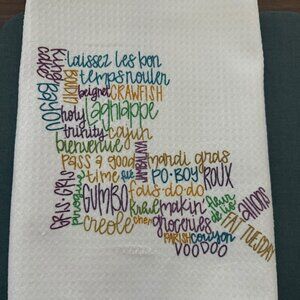 King
cake
Bayou
BOUDIN
Laissez les bon
temps rouler
beignet CRAWFISH
holy
trinity
lagniappe
cajun
bienvenue
pass a good
time
mardi gras
PO-BOY
ROUX
GRIS-GRIS
pirogue
GUMBO
fais-do-do
makin'
groceries
fleur
de lis
ALLONS
FAT TUESDAY
creole
cher
PARISH
couyon
VOODOO